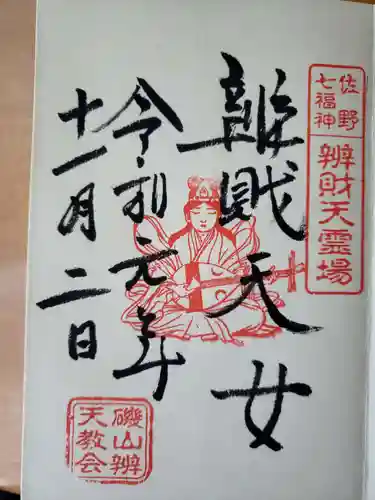 佐野
七福神
辨財天霊場
辨戝天女
令和元年
十一月二日
磯山辨
天教会